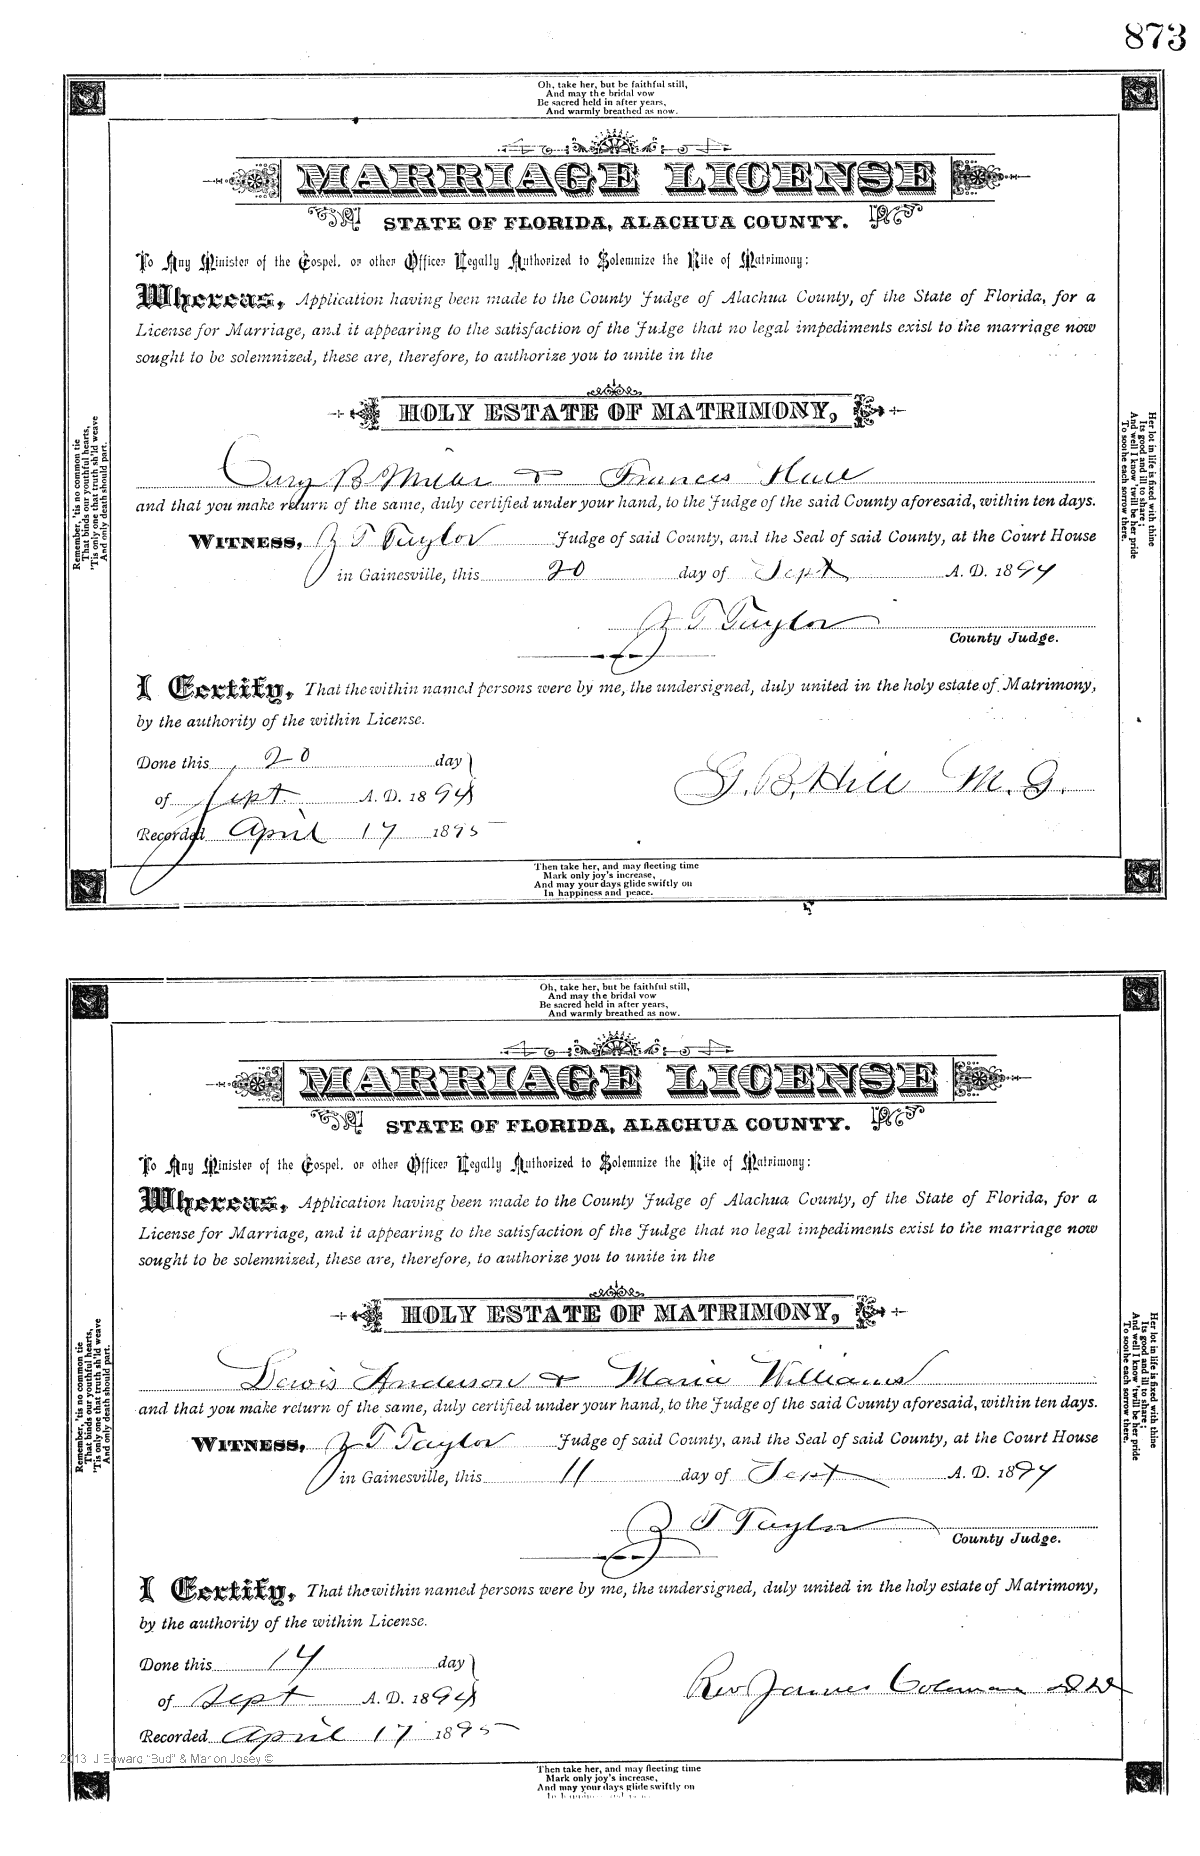 873
Oh, take her, but be faithful still,
And may the bridal vow
Be sacred held in after years,
And warmly breathed as now.
MARRIAGE LICENSE
STATE OF FLORIDA, ALACHUA COUNTY.
To Any Minister of the Gospel, or other Officer Legally Authorized to Solemnize the Rite of Matrimony:
Whereas, Application having been made to the County Judge of Alachua County, of the State of Florida, for a
License for Marriage, and it appearing to the satisfaction of the Judge that no legal impediments exist to the marriage now
sought to be solemnized, these are, therefore, to authorize you to unite in the
HOLY ESTATE OF MATRIMONY,
B Miller & Frances
and that you make return of the same, duly certified under your hand, to the Judge of the said County aforesaid, within ten days.
WITNESS, Z T Taylor Judge of said County, and the Seal of said County, at the Court House
in Gainesville, this 20 day of Sept A. D. 1894
Z T Taylor
County Judge.
I Certify, That the within named persons were by me, the undersigned, duly united in the holy estate of Matrimony,
by the authority of the within License.
Done this 20 day
of Sept. A. D. 1894
G. B. Hill M. G.
Recorded April 17 1895
Remember, 'tis no common tie
That binds our youthful hearts,
'Tis only one that truth sh'ld weave
And only death should part.
Her lot in life is fixed with thine
Its good and ill to share;
And well I know 'twill be her pride
To soothe each sorrow there.
Then take her, and may fleeting time
Mark only joy's increase,
And may your days glide swiftly on
In happiness and peace.
Oh, take her, but be faithful still,
And may the bridal vow
Be sacred held in after years,
And warmly breathed as now.
MARRIAGE LICENSE
STATE OF FLORIDA, ALACHUA COUNTY.
To Any Minister of the Gospel, or other Officer Legally Authorized to Solemnize the Rite of Matrimony:
Whereas, Application having been made to the County Judge of Alachua County, of the State of Florida, for a
License for Marriage, and it appearing to the satisfaction of the Judge that no legal impediments exist to the marriage now
sought to be solemnized, these are, therefore, to authorize you to unite in the
HOLY ESTATE OF MATRIMONY,
Lewis Anderson & Maria Williams
and that you make return of the same, duly certified under your hand, to the Judge of the said County aforesaid, within ten days.
WITNESS, Z T Taylor Judge of said County, and the Seal of said County, at the Court House
in Gainesville, this 11 day of Sept A. D. 1894
Z T Taylor
County Judge.
I Certify, That the within named persons were by me, the undersigned, duly united in the holy estate of Matrimony,
by the authority of the within License.
Done this 14 day
of Sept A. D. 1894
Rev James Coleman
Recorded April 17 1895
Remember, 'tis no common tie
That binds our youthful hearts,
'Tis only one that truth sh'ld weave
And only death should part.
Her lot in life is fixed with thine
Its good and ill to share;
And well I know 'twill be her pride
To soothe each sorrow there.
2013 J Edward "Bud" & Marion Josey ©
Then take her, and may fleeting time
Mark only joy's increase,
And may your days glide swiftly on